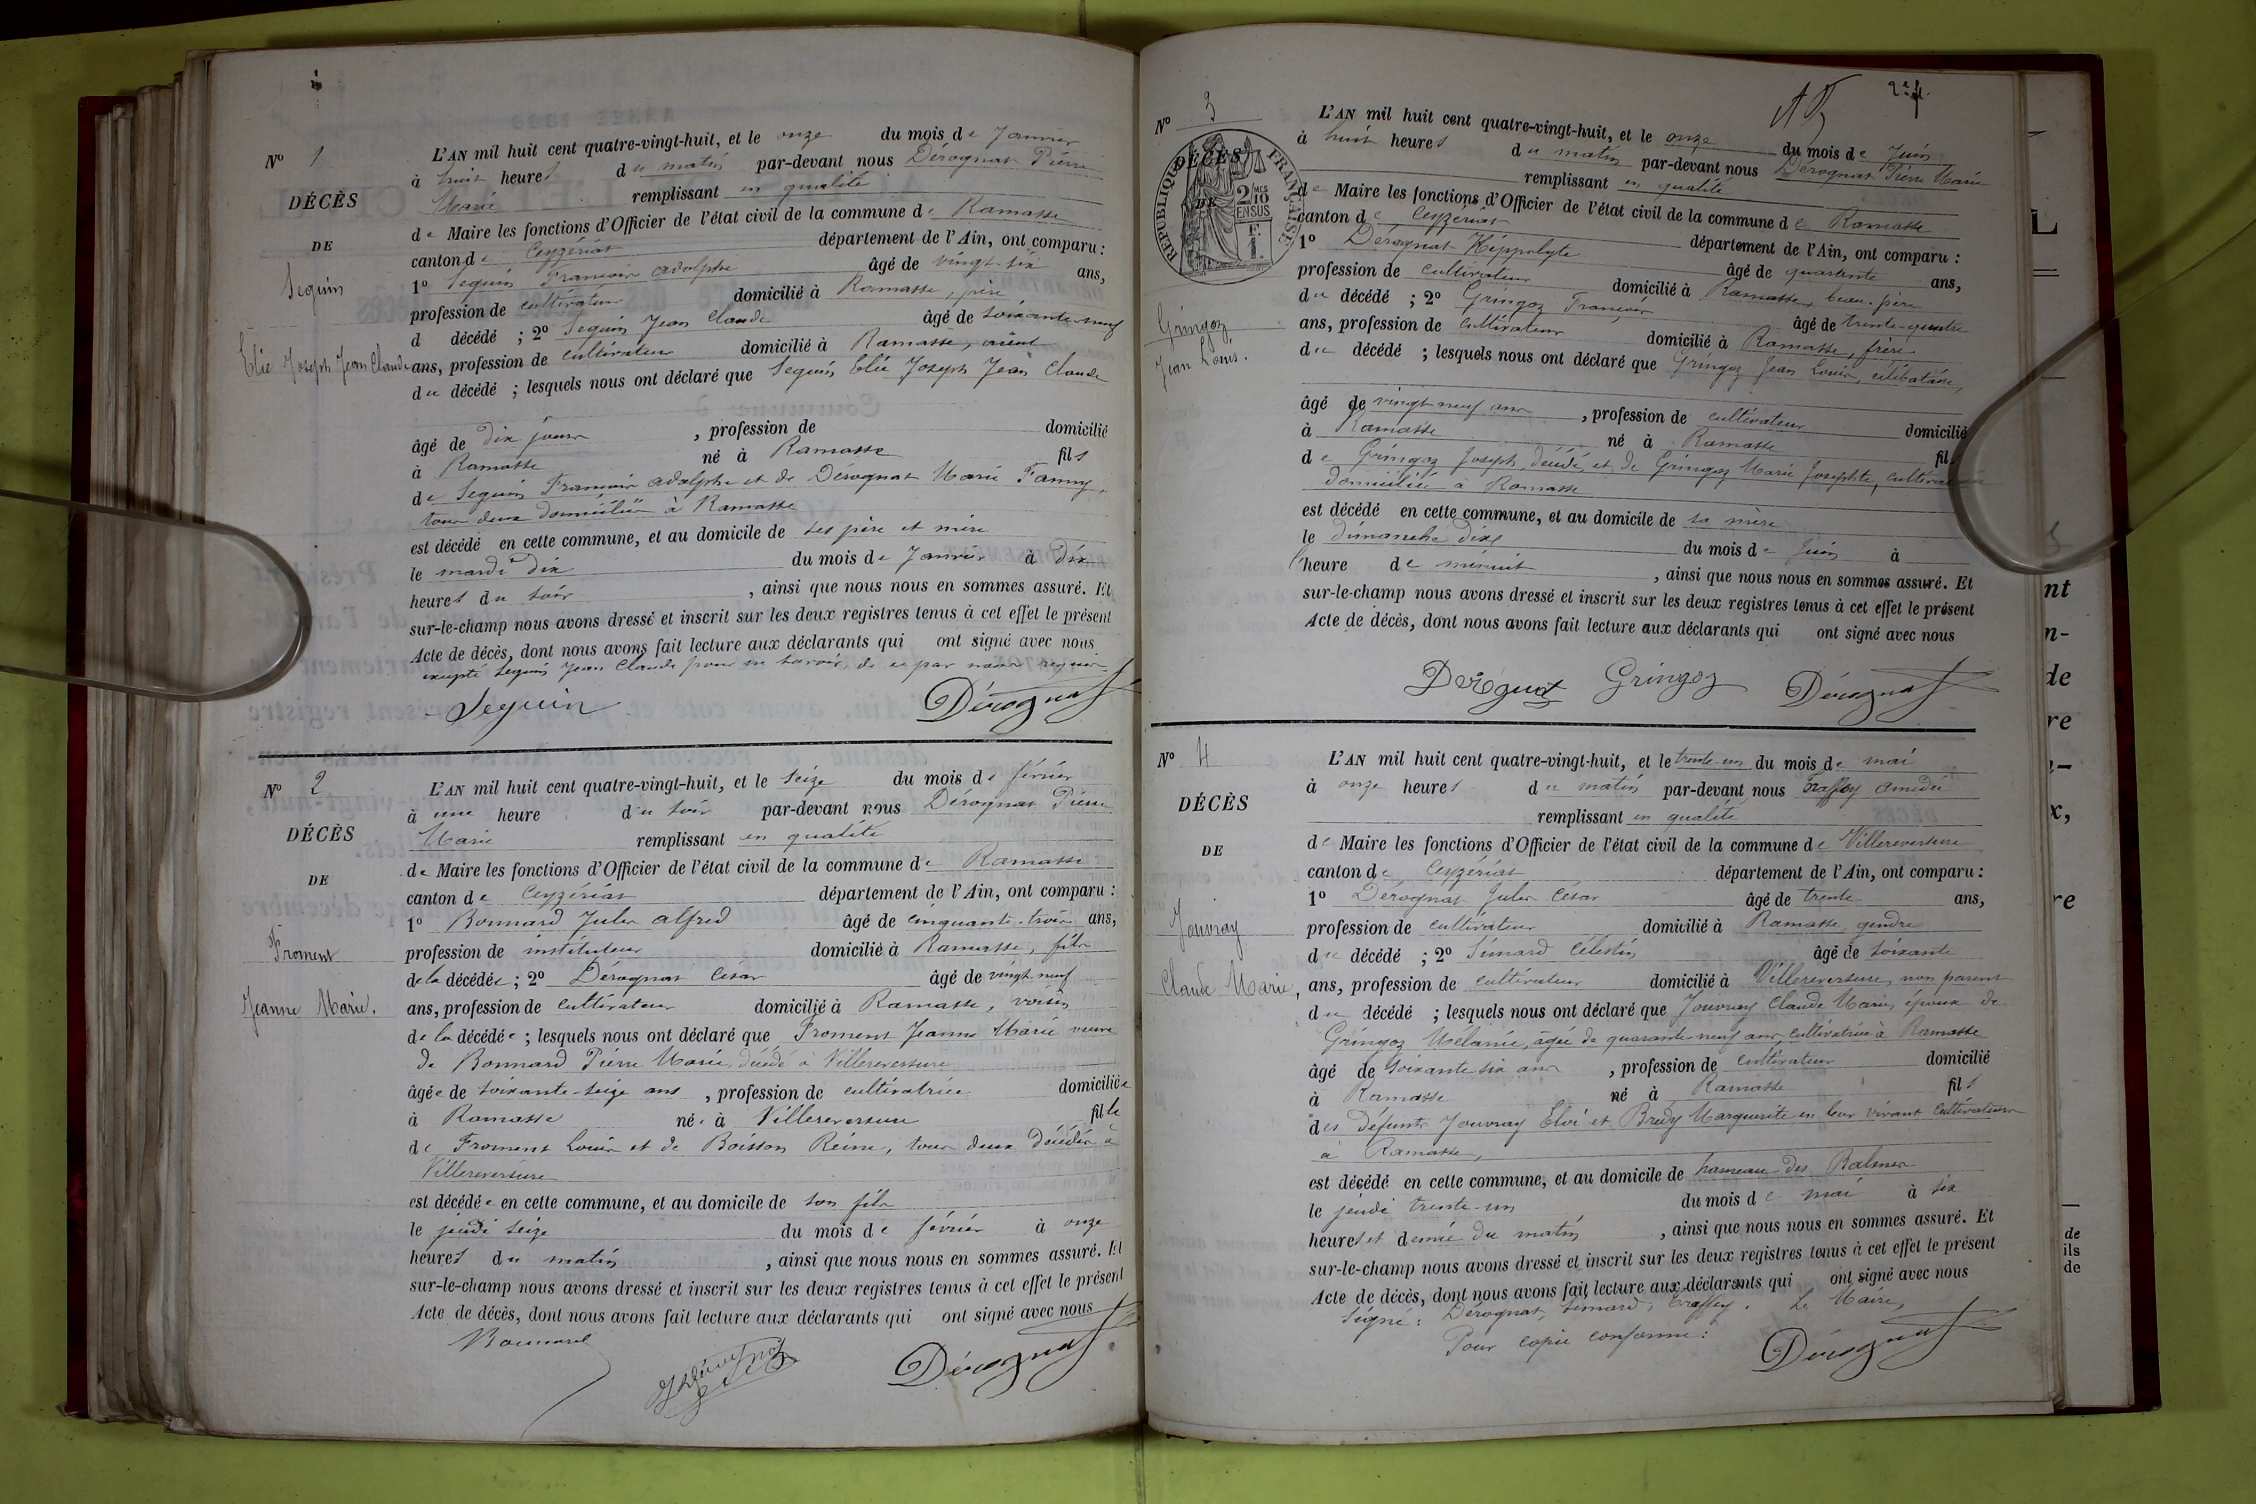 N° 1
DÉCÈS
DE
Seguin
Elie Joseph Jean Claude
L'AN mil huit cent quatre-vingt-huit, et le onze du mois de Janvier
à huit heures du matin par-devant nous Dérognat Pierre
Marie remplissant en qualité
de Maire les fonctions d'Officier de l'état civil de la commune de Ramasse
canton de Ceyzériat département de l'Ain, ont comparu :
1° Seguin François Adolphe âgé de vingt-six ans,
profession de cultivateur domicilié à Ramasse, père
d décédé ; 2° Seguin Jean Claude âgé de soixante-neuf
ans, profession de cultivateur domicilié à Ramasse,
du décédé ; lesquels nous ont déclaré que Seguin Elie Joseph Jean Claude
âgé de dix jours , profession de domicilié
à Ramasse né à Ramasse fils
de Seguin François Adolphe et de Dérognat Marie Fanny,
tous deux domiciliés à Ramasse
est décédé en cette commune, et au domicile de ses père et mère
le mardi dix du mois de Janvier à dix
heures du soir , ainsi que nous nous en sommes assuré. Et
sur-le-champ nous avons dressé et inscrit sur les deux registres tenus à cet effet le présent
Acte de décès, dont nous avons fait lecture aux déclarants qui ont signé avec nous
excepté Seguin Jean Claude pour ne savoir, de ce par nous requis
Seguin Dérognat
N° 2
DÉCÈS
DE
Froment
Jeanne Marie.
L'AN mil huit cent quatre-vingt-huit, et le seize du mois de février
à une heure du soir par-devant nous Dérognat Pierre
Marie remplissant en qualité
de Maire les fonctions d'Officier de l'état civil de la commune de Ramasse
canton de Ceyzériat département de l'Ain, ont comparu :
1° Bonnard Jules Alfred âgé de cinquante-trois ans,
profession de instituteur domicilié à Ramasse, fils
de la décédée ; 2° Dérognat César âgé de vingt neuf
ans, profession de cultivateur domicilié à Ramasse, voisin
de la décédée ; lesquels nous ont déclaré que Froment Jeanne Marie veuve
de Bonnard Pierre Marie, décédé à Villereversure
âgée de soixante-seize ans , profession de cultivatrice domiciliée
à Ramasse née à Villereversure fille
de Froment Louis et de Boisson Reine, tous deux décédés à
Villereversure
est décédée en cette commune, et au domicile de son fils
le jeudi seize du mois de février à onze
heures du matin , ainsi que nous nous en sommes assuré. Et
sur-le-champ nous avons dressé et inscrit sur les deux registres tenus à cet effet le présent
Acte de décès, dont nous avons fait lecture aux déclarants qui ont signé avec nous
Bonnard Dérognat
N° 3
DÉCÈS
DE
RÉPUBLIQUE FRANÇAISE
2 10 EN SUS
F. 1.
Gringoz
Jean Louis.
L'AN mil huit cent quatre-vingt-huit, et le onze du mois de Juin
à huit heures du matin par-devant nous Dérognat Pierre Marie
remplissant en qualité
de Maire les fonctions d'Officier de l'état civil de la commune de Ramasse
canton de Ceyzériat département de l'Ain, ont comparu :
1° Dérognat Hippolyte âgé de quarante ans,
profession de cultivateur domicilié à Ramasse, beau-frère
du décédé ; 2° Gringoz François âgé de trente-quatre
ans, profession de cultivateur domicilié à Ramasse, frère
du décédé ; lesquels nous ont déclaré que Gringoz Jean Louis, célibataire,
âgé de vingt neuf ans , profession de cultivateur domicilié
à Ramasse né à Ramasse fils
de Gringoz Joseph, décédé et de Gringoz Marie Josephte, cultivatrice
domiciliée à Ramasse
est décédé en cette commune, et au domicile de sa mère
le dimanche dix du mois de Juin à
l'heure de minuit , ainsi que nous nous en sommes assuré. Et
sur-le-champ nous avons dressé et inscrit sur les deux registres tenus à cet effet le présent
Acte de décès, dont nous avons fait lecture aux déclarants qui ont signé avec nous
Dérognat Gringoz Dérognat
N° 4
DÉCÈS
DE
Jouvray
Claude Marie,
L'AN mil huit cent quatre-vingt-huit, et le trente-un du mois de mai
à onze heures du matin par-devant nous Traffey Amédée
remplissant en qualité
de Maire les fonctions d'Officier de l'état civil de la commune de Villereversure
canton de Ceyzériat département de l'Ain, ont comparu :
1° Dérognat Jules César âgé de trente ans,
profession de cultivateur domicilié à Ramasse, gendre
du décédé ; 2° Simard Célestin âgé de soixante
ans, profession de cultivateur domicilié à Villereversure, non parent
du décédé ; lesquels nous ont déclaré que Jouvray Claude Marie, époux de
Gringoz Mélanie, âgée de quarante-neuf ans, cultivatrice à Ramasse
âgé de soixante six ans , profession de cultivateur domicilié
à Ramasse né à Ramasse fils
des défunts Jouvray Eloi et Bredy Marguerite en leur vivant cultivateurs
à Ramasse,
est décédé en cette commune, et au domicile de hameau des Balmes
le jeudi trente-un du mois de mai à six
heures et demie du matin , ainsi que nous nous en sommes assuré. Et
sur-le-champ nous avons dressé et inscrit sur les deux registres tenus à cet effet le présent
Acte de décès, dont nous avons fait lecture aux déclarants qui ont signé avec nous
Signé : Dérognat, Simard, Traffey. Le Maire,
Pour copie conforme :
Dérognat